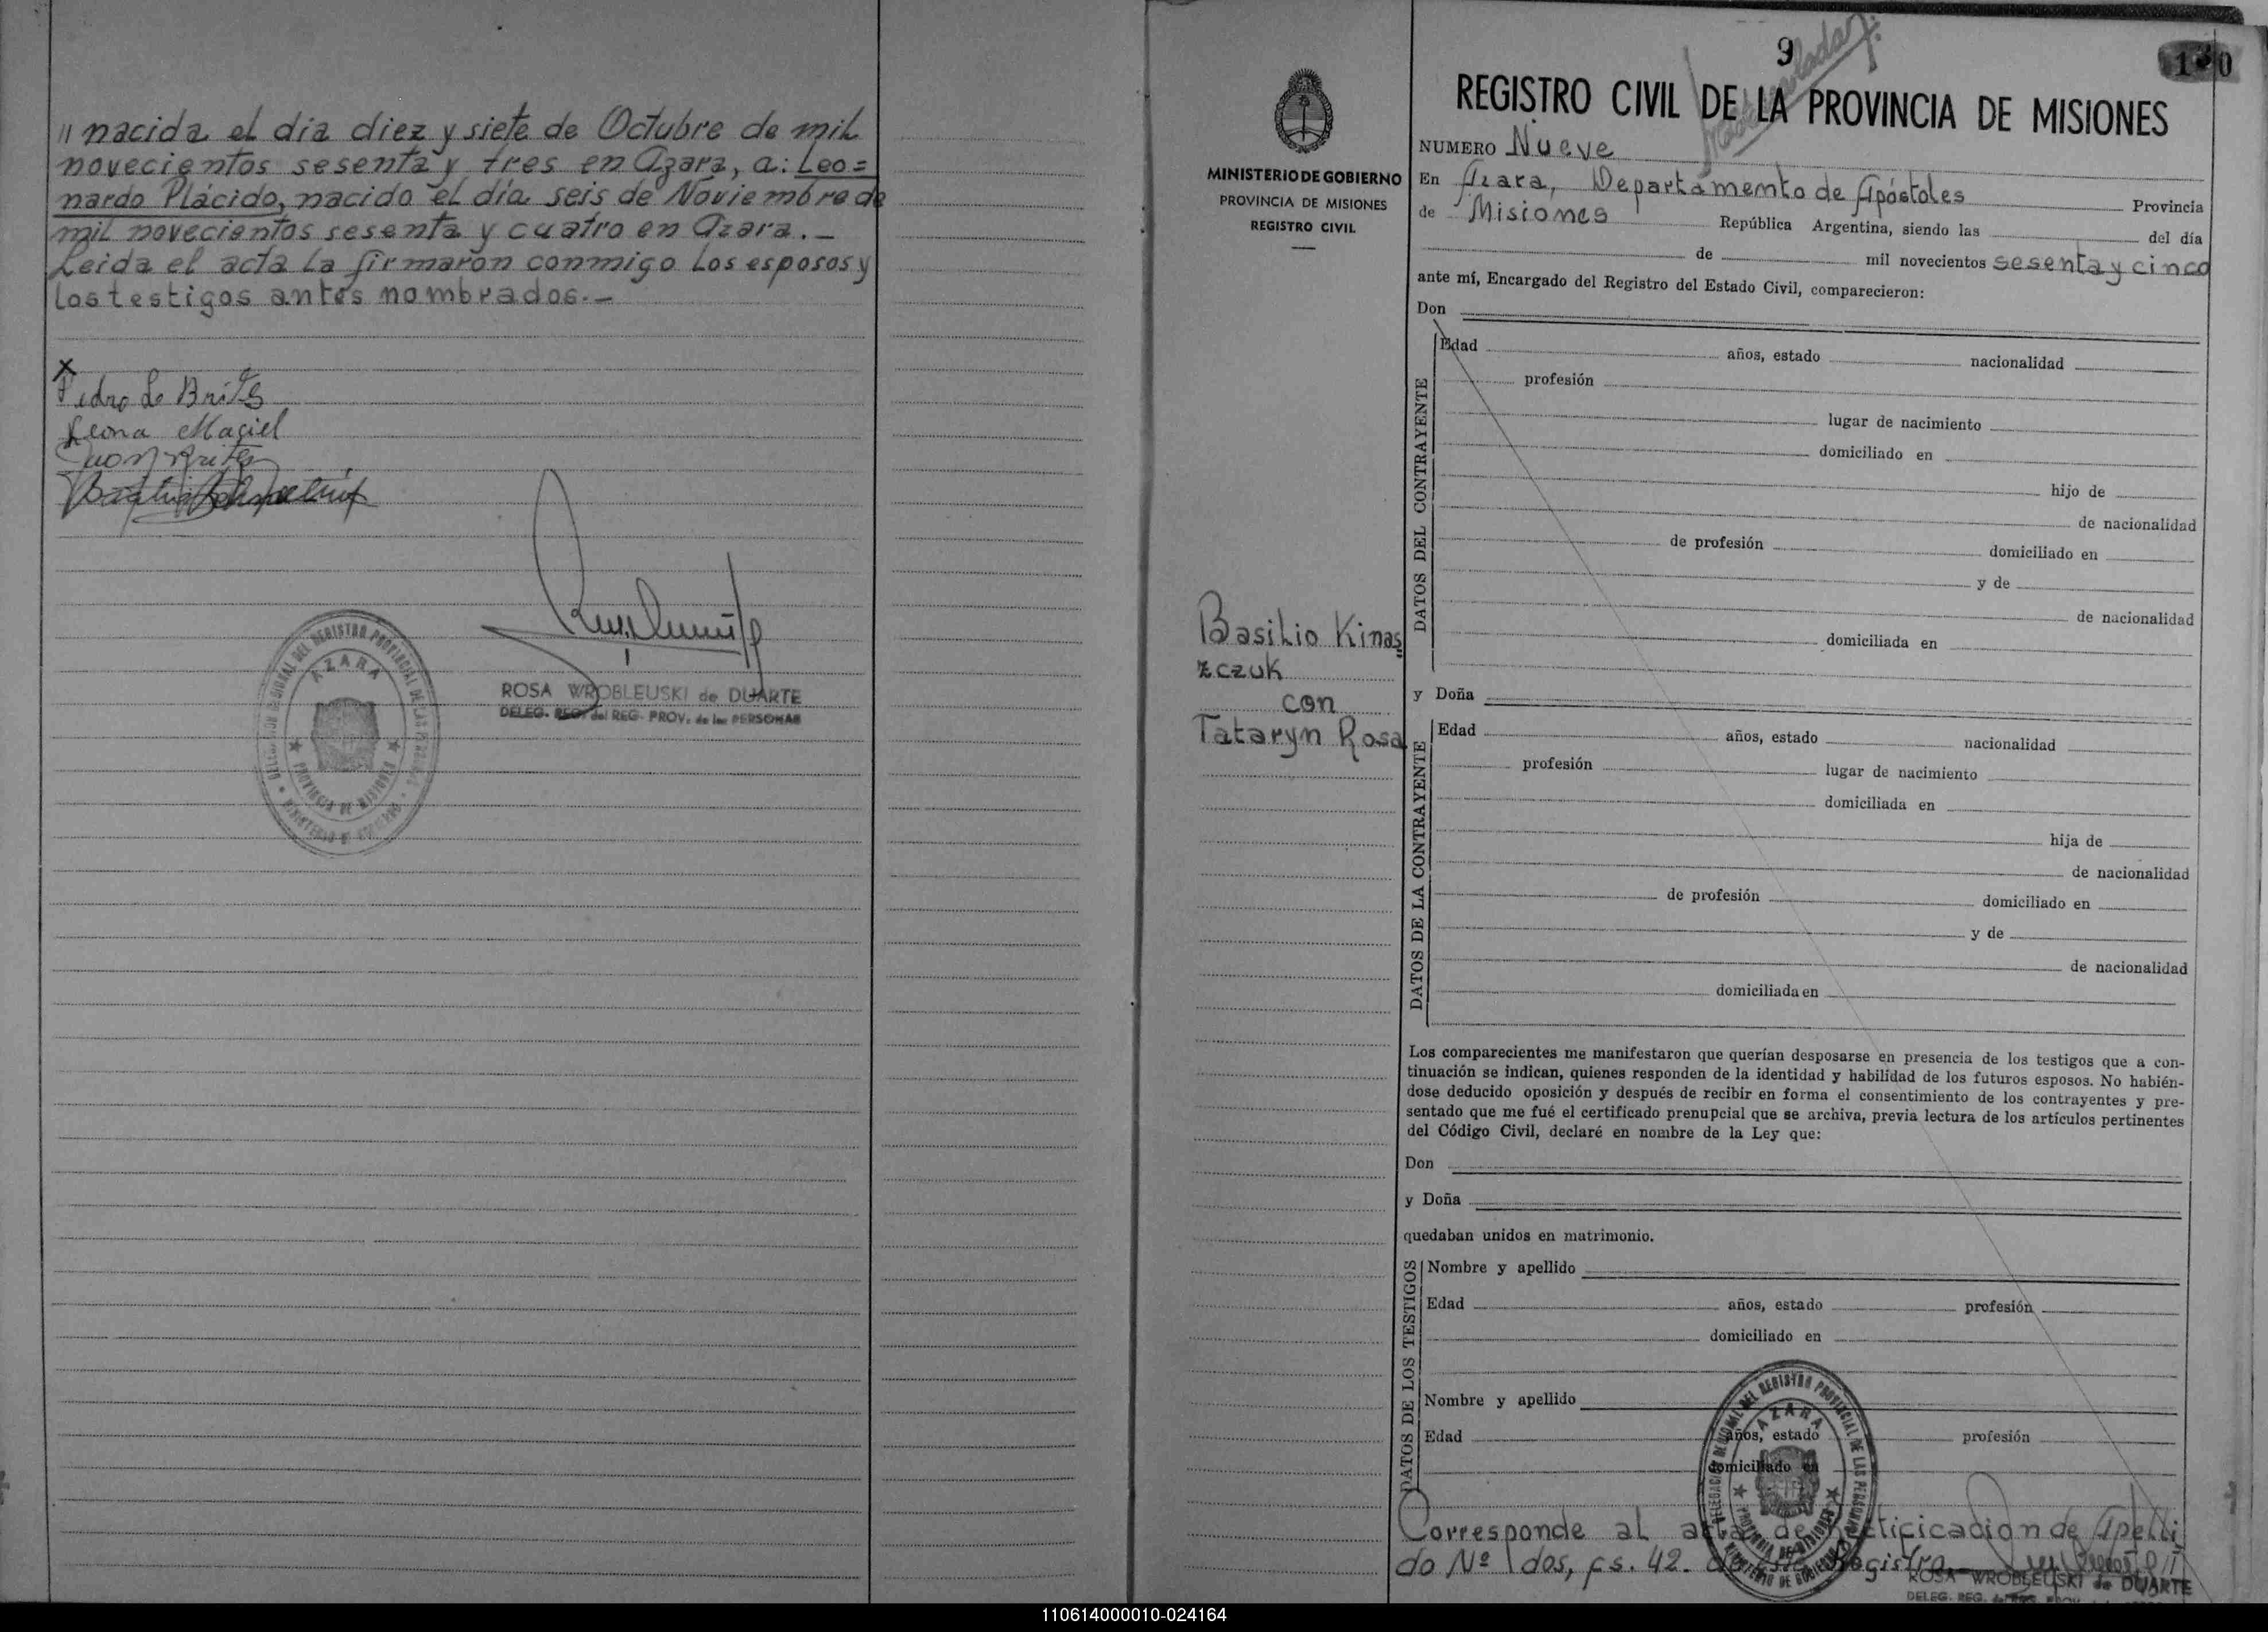 " nacida el día diez y siete de Octubre de mil
novecientos sesenta y tres en Azara, a: Leo=
nardo Plácido, nacido el día seis de Noviembre de
mil novecientos sesenta y cuatro en Azara.—
Leida el acta la firmaron conmigo los esposos y
los testigos antes nombrados.—
x
Pedro L. Brites
Leona Maciel
Brites
DELEGACION REGIONAL DEL REGISTRO PROVINCIAL DE LAS PERSONAS
AZARA
PROVINCIA DE MISIONES
MINISTERIO DE GOBIERNO
ROSA WROBLEUSKI de DUARTE
DELEG. REG. del REG. PROV. de las PERSONAS
MINISTERIO DE GOBIERNO
PROVINCIA DE MISIONES
REGISTRO CIVIL
Basilio Kinas
zczuk
con
Tataryn Rosa
9
REGISTRO CIVIL DE LA PROVINCIA DE MISIONES
NUMERO Nueve
En Azara, Departamento de Apóstoles Provincia
de Misiones República Argentina, siendo las del día
de mil novecientos sesenta y cinco
ante mí, Encargado del Registro del Estado Civil, comparecieron:
Don
DATOS DEL CONTRAYENTE
Edad años, estado nacionalidad
profesión
lugar de nacimiento
domiciliado en
hijo de
de nacionalidad
de profesión domiciliado en
y de
de nacionalidad
domiciliada en
y Doña
DATOS DE LA CONTRAYENTE
Edad años, estado nacionalidad
profesión lugar de nacimiento
domiciliada en
hija de
de nacionalidad
de profesión domiciliado en
y de
de nacionalidad
domiciliada en
Los comparecientes me manifestaron que querían desposarse en presencia de los testigos que a con-
tinuación se indican, quienes responden de la identidad y habilidad de los futuros esposos. No habién-
dose deducido oposición y después de recibir en forma el consentimiento de los contrayentes y pre-
sentado que me fué el certificado prenupcial que se archiva, previa lectura de los artículos pertinentes
del Código Civil, declaré en nombre de la Ley que:
Don
y Doña
quedaban unidos en matrimonio.
DATOS DE LOS TESTIGOS
Nombre y apellido
Edad años, estado profesión
domiciliado en
Nombre y apellido
Edad años, estado profesión
domiciliado en
Corresponde al acta de Rectificicación de Apelli
do Nº dos, fs. 42. de este Registro.
AZARA
PROVINCIA DE MISIONES
MINISTERIO DE GOBIERNO
ROSA WROBLEUSKI de DUARTE
DELEG. REG.
110614000010-024164